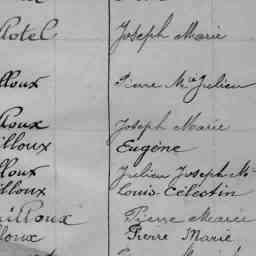 otel Joseph Marie
lloux Pierre Mie Julien
Roux Joseph Marie
illoux Eugène
lloux Julien Joseph M
illoux Louis Célestin
Pierre Marie
lloux Pierre Marie